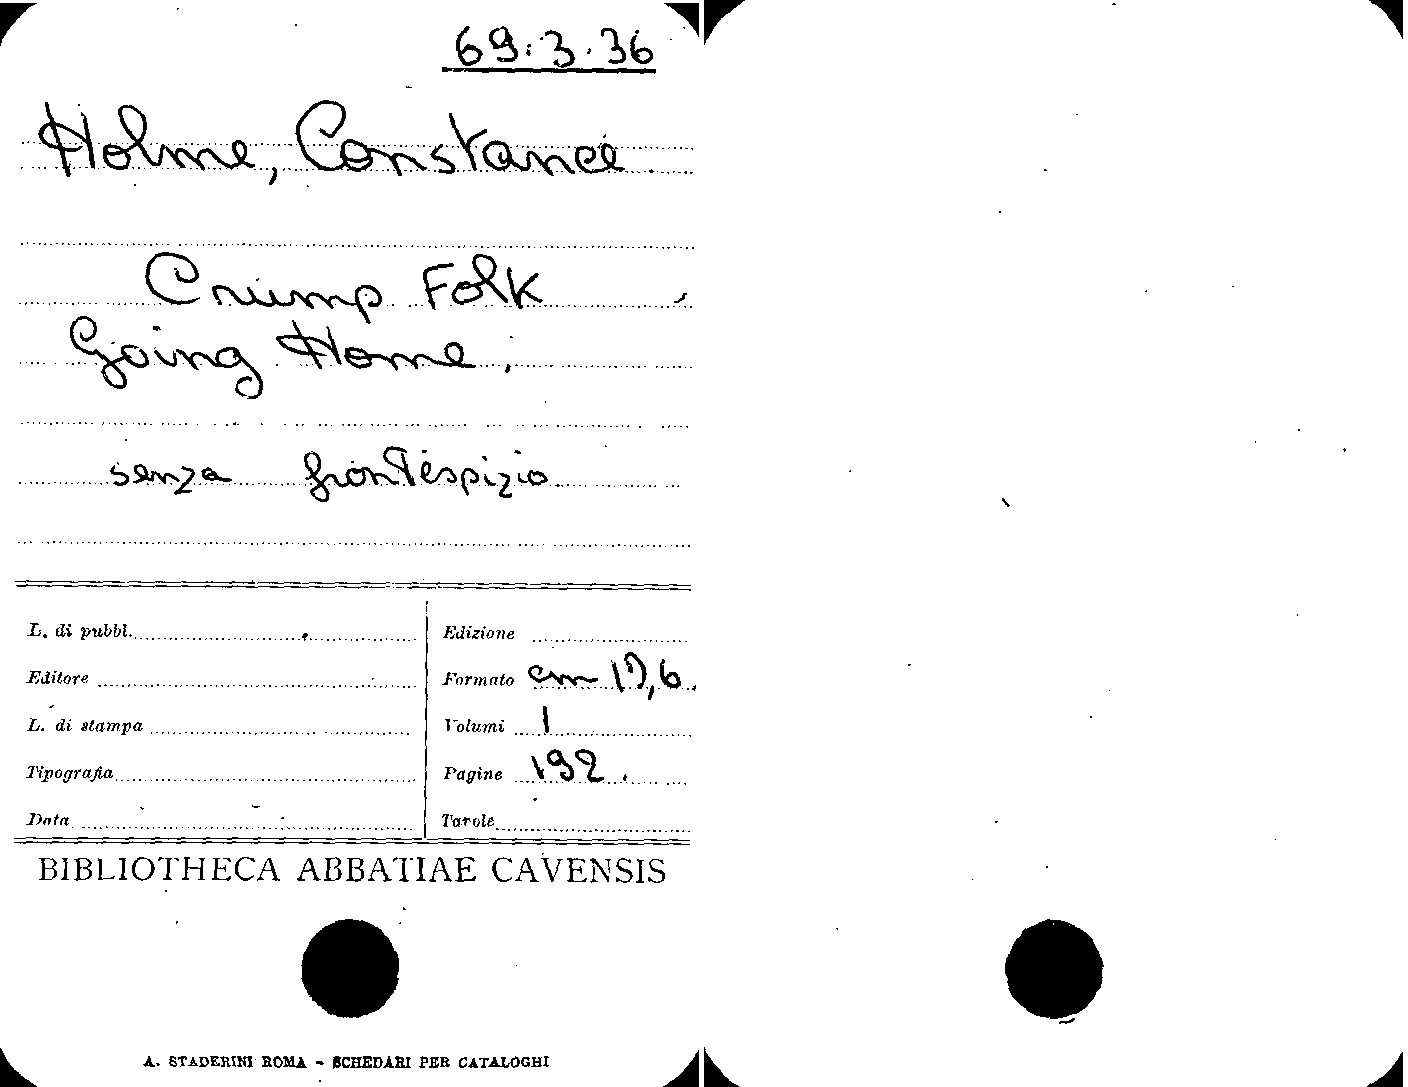 69.3.36
Holme, Constance.
Crump Folk
Going Home.
senza frontespizio
L. di pubbl.
Editore
L. di stampa
Tipografia
Data
Edizione
Formato cm 19,6.
Volumi 1
Pagine 192.
Tavole
BIBLIOTHECA ABBATIAE CAVENSIS
A. STADERINI ROMA - SCHEDARI PER CATALOGHI